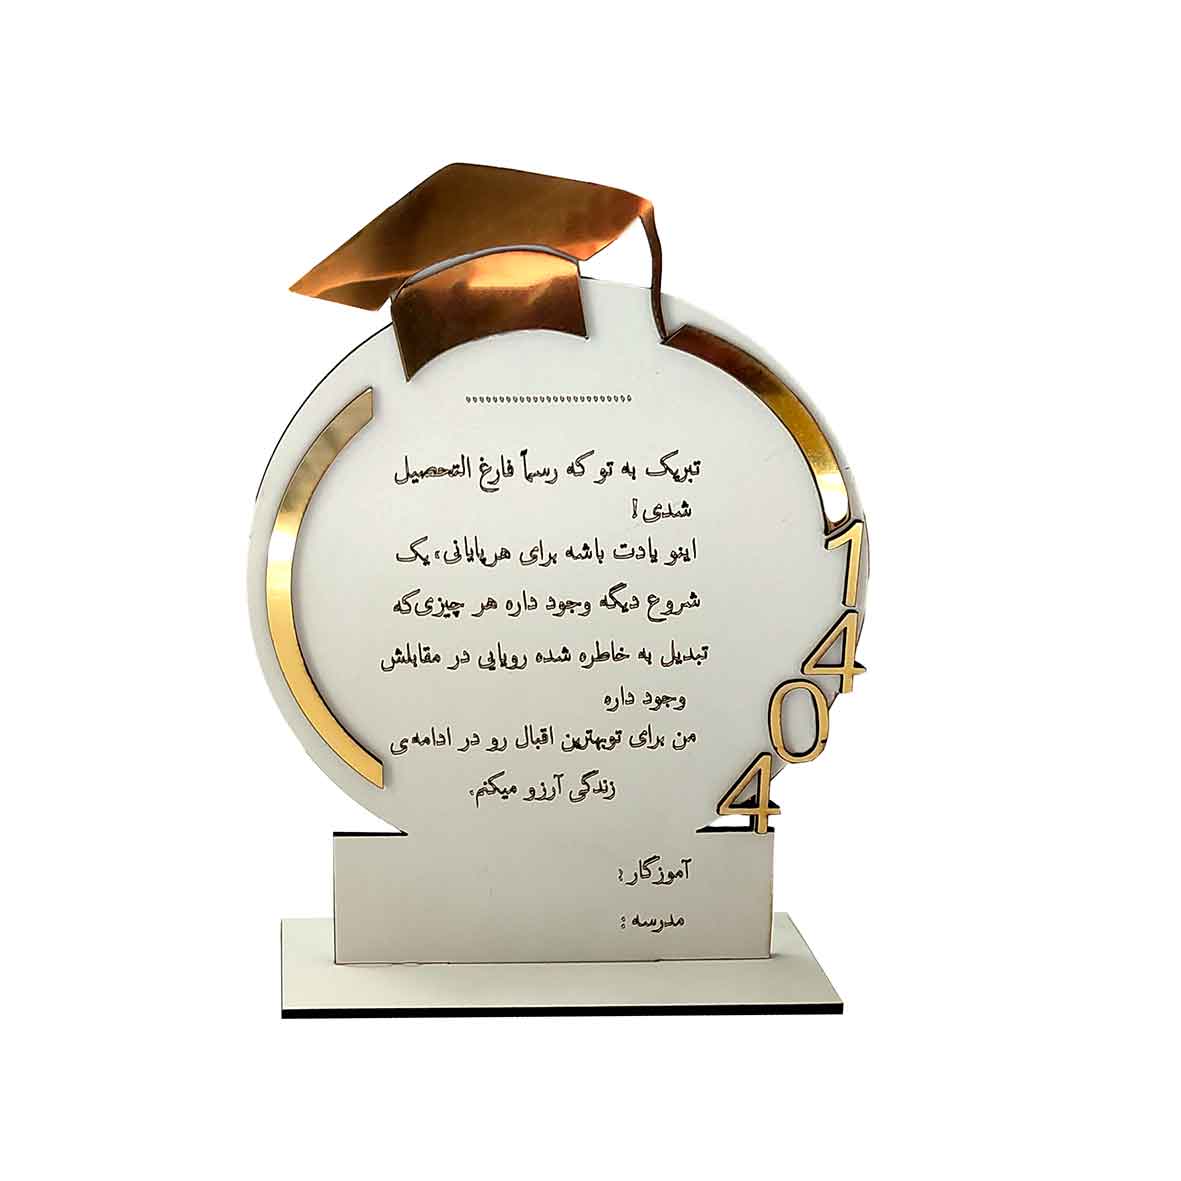 ..........................
تبریک به تو که رسماً فارغ التحصیل
شدی!
اینو یادت باشه برای هرپایانی، یک
شروع دیگه وجود داره هر چیزی‌که
تبدیل به خاطره شده رویایی در مقابلش
وجود داره
من برای توبهترین اقبال رو در ادامه‌ی
زندگی آرزو میکنم.
1404
آموزگار:
مدرسه: